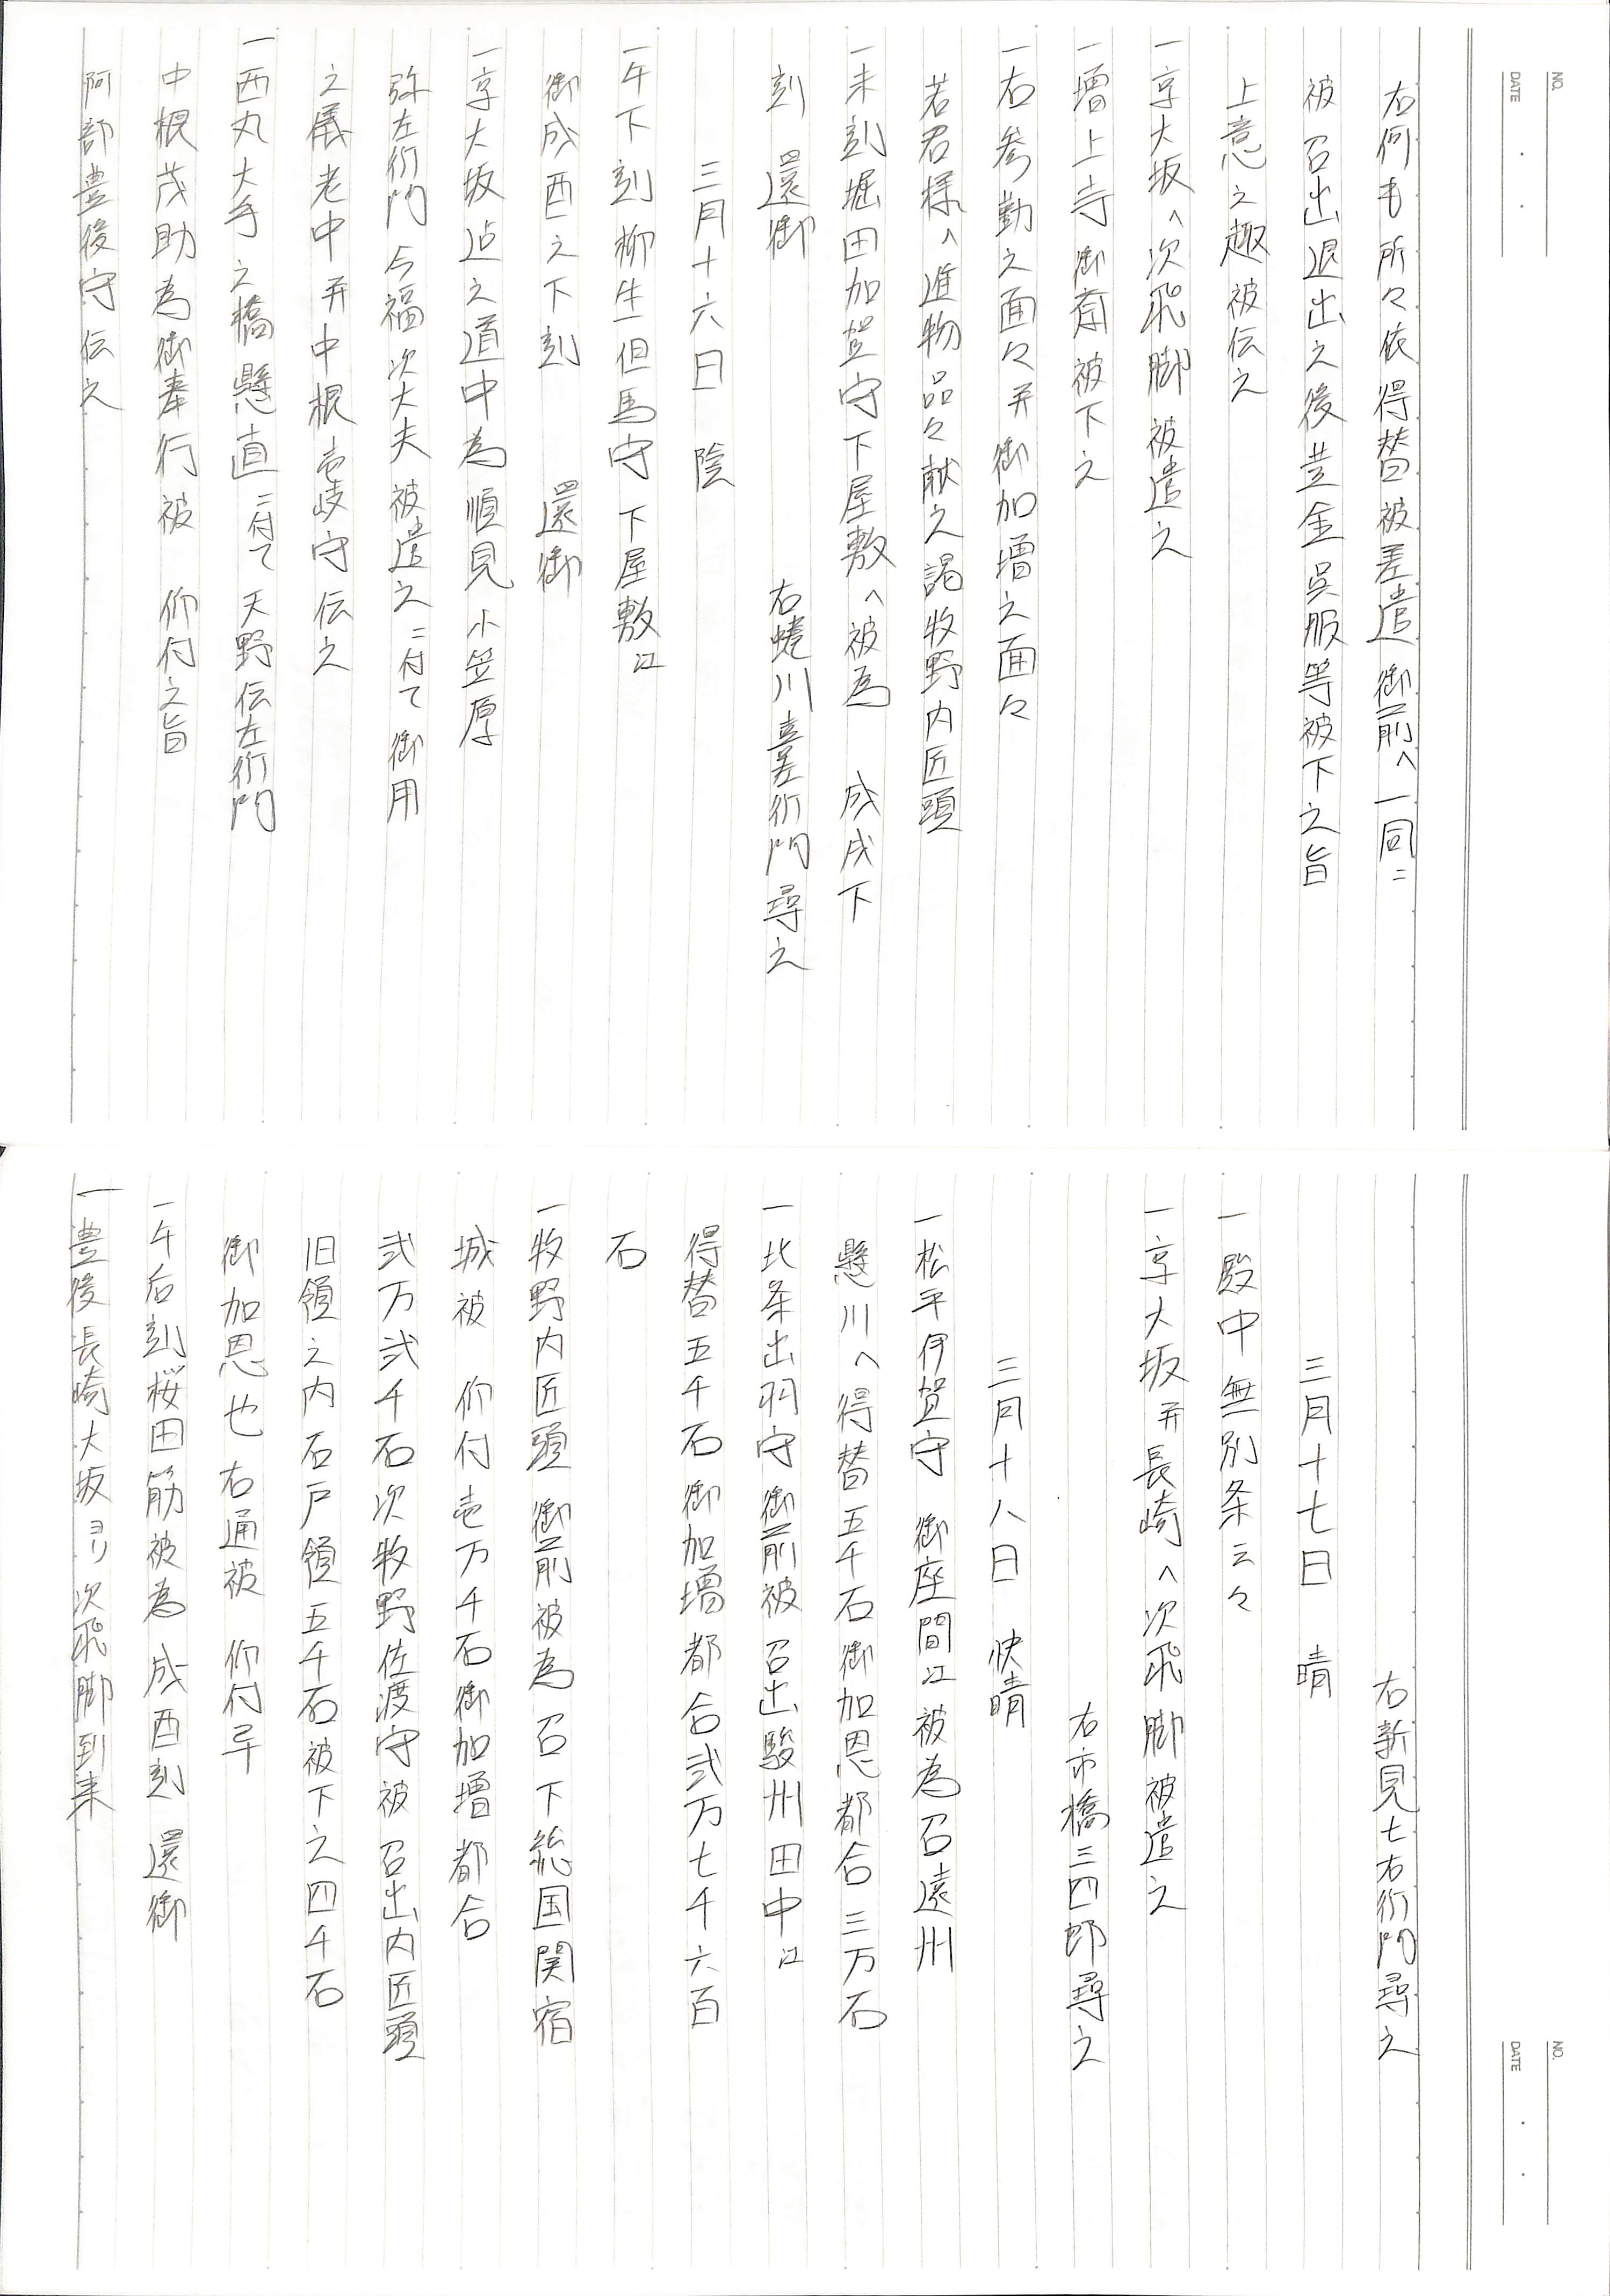 NO.
DATE
右何も所々依得替被差遣御前へ一同ニ
被召出退出之後黄金呉服等被下之旨
上意之趣被伝之
一京大坂へ次飛脚被遣之
一増上寺御斎被下之
一右参勤之面々并御加増之面々
若君様へ進物品々献之謁牧野内匠頭
一未刻堀田加賀守下屋敷へ被為　成戌下
刻　還御　右蜷川喜左衛門尋之
三月十六日　陰
一午下刻柳生但馬守下屋敷江
御成酉之下刻　還御
一京大坂迄之道中為順見小笠原
弥左衛門今福次大夫被遣之ニ付て御用
之儀老中并中根壱岐守伝之
一西丸大手之橋懸直ニ付て天野伝左衛門
中根茂助為御奉行被　仰付之旨
阿部豊後守伝之
NO.
DATE
右新見七右衛門尋之
三月十七日　晴
一殿中無別条云々
一京大坂并長崎へ次飛脚被遣之
右市橋三四郎尋之
三月十八日　快晴
一松平伊賀守　御座間江被為召遠州
懸川へ得替五千石御加恩都合三万石
一北条出羽守御前被　召出駿州田中江
得替五千石御加増都合弐万七千六百
石
一牧野内匠頭　御前被為召下総国関宿
城被　仰付壱万千石御加増都合
弐万弐千石次牧野佐渡守被召出内匠頭
旧領之内石戸領五千石被下之四千石
御加恩也右通被　仰付早
一午后刻桜田筋被為　成酉刻　還御
一豊後長崎大坂ヨリ次飛脚到来